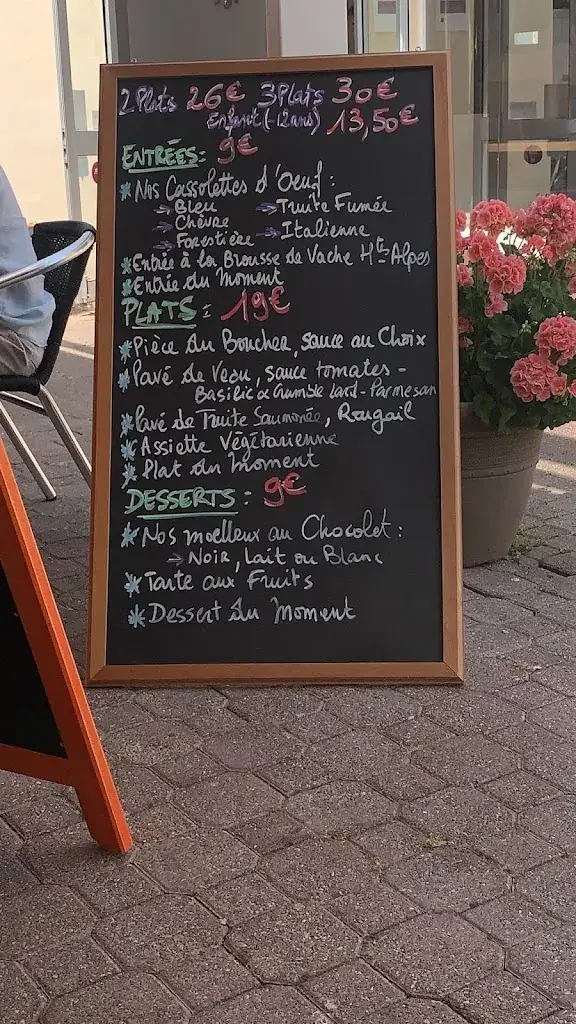 2 Plats 26€ 3 Plats 30€
Enfant (-12 ans) 13,50€
ENTRÉES: 9€
* Nos Cassolettes d'Oeuf:
→ Bleu → Truite Fumée
→ Chèvre
→ Forestière → Italienne
* Entrée à la Brousse de Vache Htes Alpes
* Entrée du Moment
PLATS: 19€
* Pièce du Boucher, sauce au Choix
* Pavé de Veau, sauce tomates -
Basilic & Crumble lard-Parmesan
* Pavé de Truite Saumonée, Rougail
* Assiette Végétarienne
* Plat du Moment
DESSERTS: 9€
* Nos moelleux au Chocolat:
→ Noir, lait ou Blanc
* Tarte aux Fruits
* Dessert du Moment